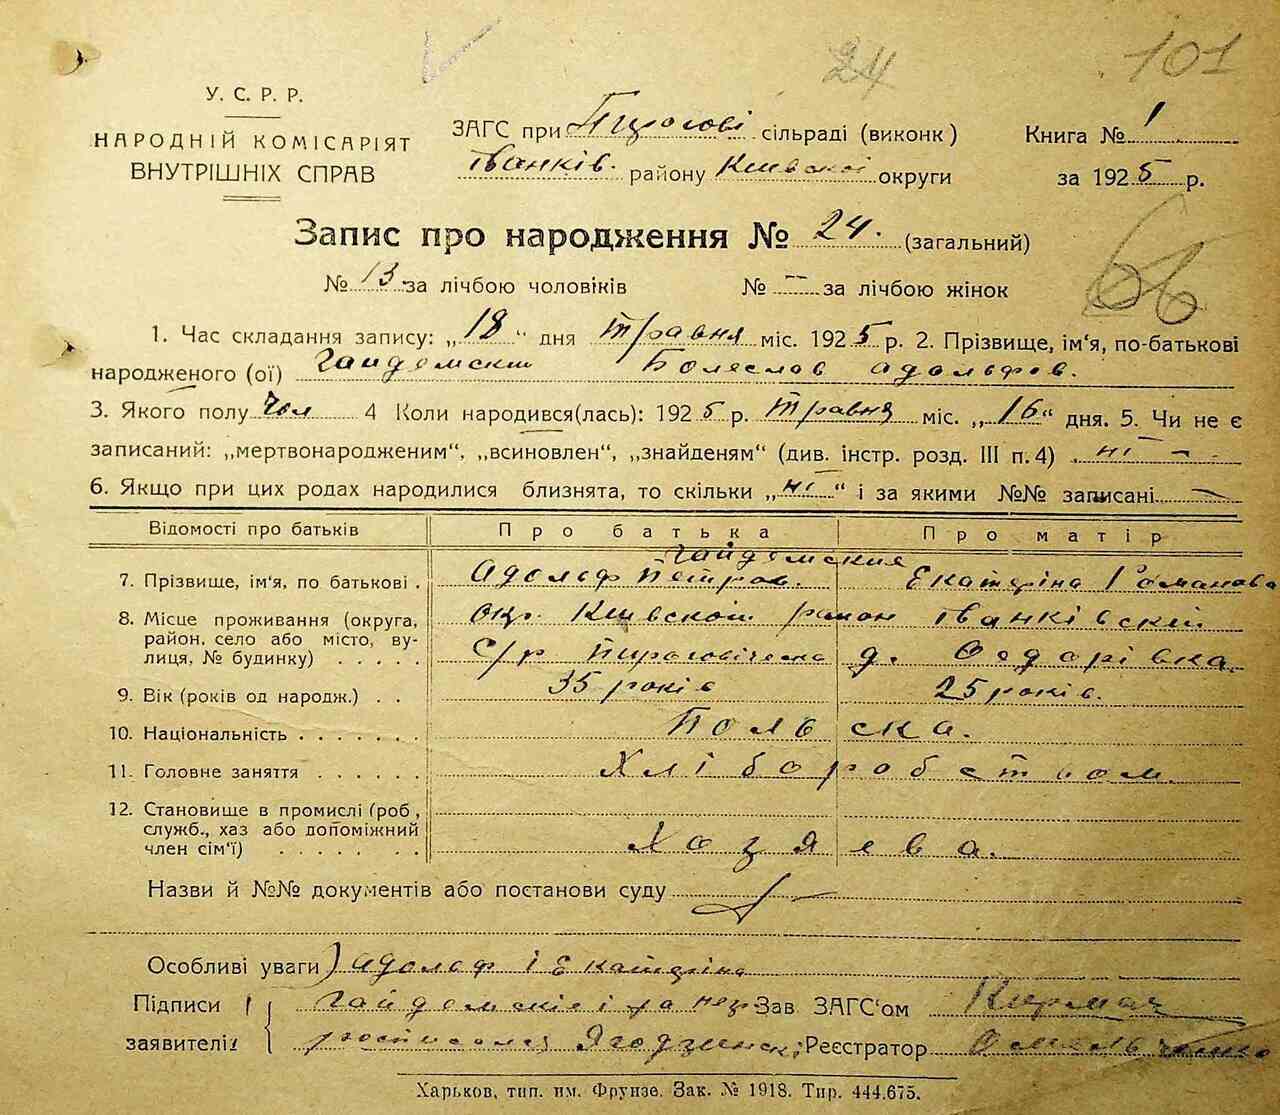 24 101
У. С. Р. Р.
НАРОДНІЙ КОМІСАРІЯТ
ВНУТРІШНІХ СПРАВ
ЗАГС при сільраді (виконк)
Іванків. району Киевскої округи
Книга № 1
за 1925 р.
Запис про народження № 24. (загальний)
66
№ 13 за лічбою чоловіків № — за лічбою жінок
1. Час складання запису: „18“ дня травня міс. 1925 р. 2. Прізвище, ім‘я, по-батькові
народженого (ої) Гайдемский Болеслов Адольфов.
3. Якого полу Чол 4 Коли народився(лась): 1925 р. травня міс. „16“ дня. 5. Чи не є
записаний: „мертвонародженим“, „всиновлен“, „знайденям“ (див. інстр. розд. III п. 4) ні —
6. Якщо при цих родах народилися близнята, то скільки „ні“ і за якими №№ записані —
Відомості про батьків Про батька Про матір
Гайдемския
7. Прізвище, ім‘я, по батькові . Адольф Петров. Екатеріна Романова
8. Місце проживання (округа,
район, село або місто, ву-
лиця, № будинку) . . . . .
окр. Киевской район Іванківскій
С/р д. Федорівка.
9. Вік (років од народж.) . . 35 років 25 років.
10. Національність . . . . . . . Польска.
11. Головне заняття . . . . . . Хліборобством.
12. Становище в промислі (роб,
служб., хаз або допоміжний
член сім‘ї) . . . . . . .
Хозяева.
Назви й №№ документів або постанови суду
Особливі уваги) Адольф і Екатеріна
Підписи Гайдемскіе і за нер Зав ЗАГС‘ом
заявителів росписолц Ягодзинскі Реєстратор Омельченко
Харьков, тип. им. Фрунзе. Зак. № 1918. Тир. 444.675.